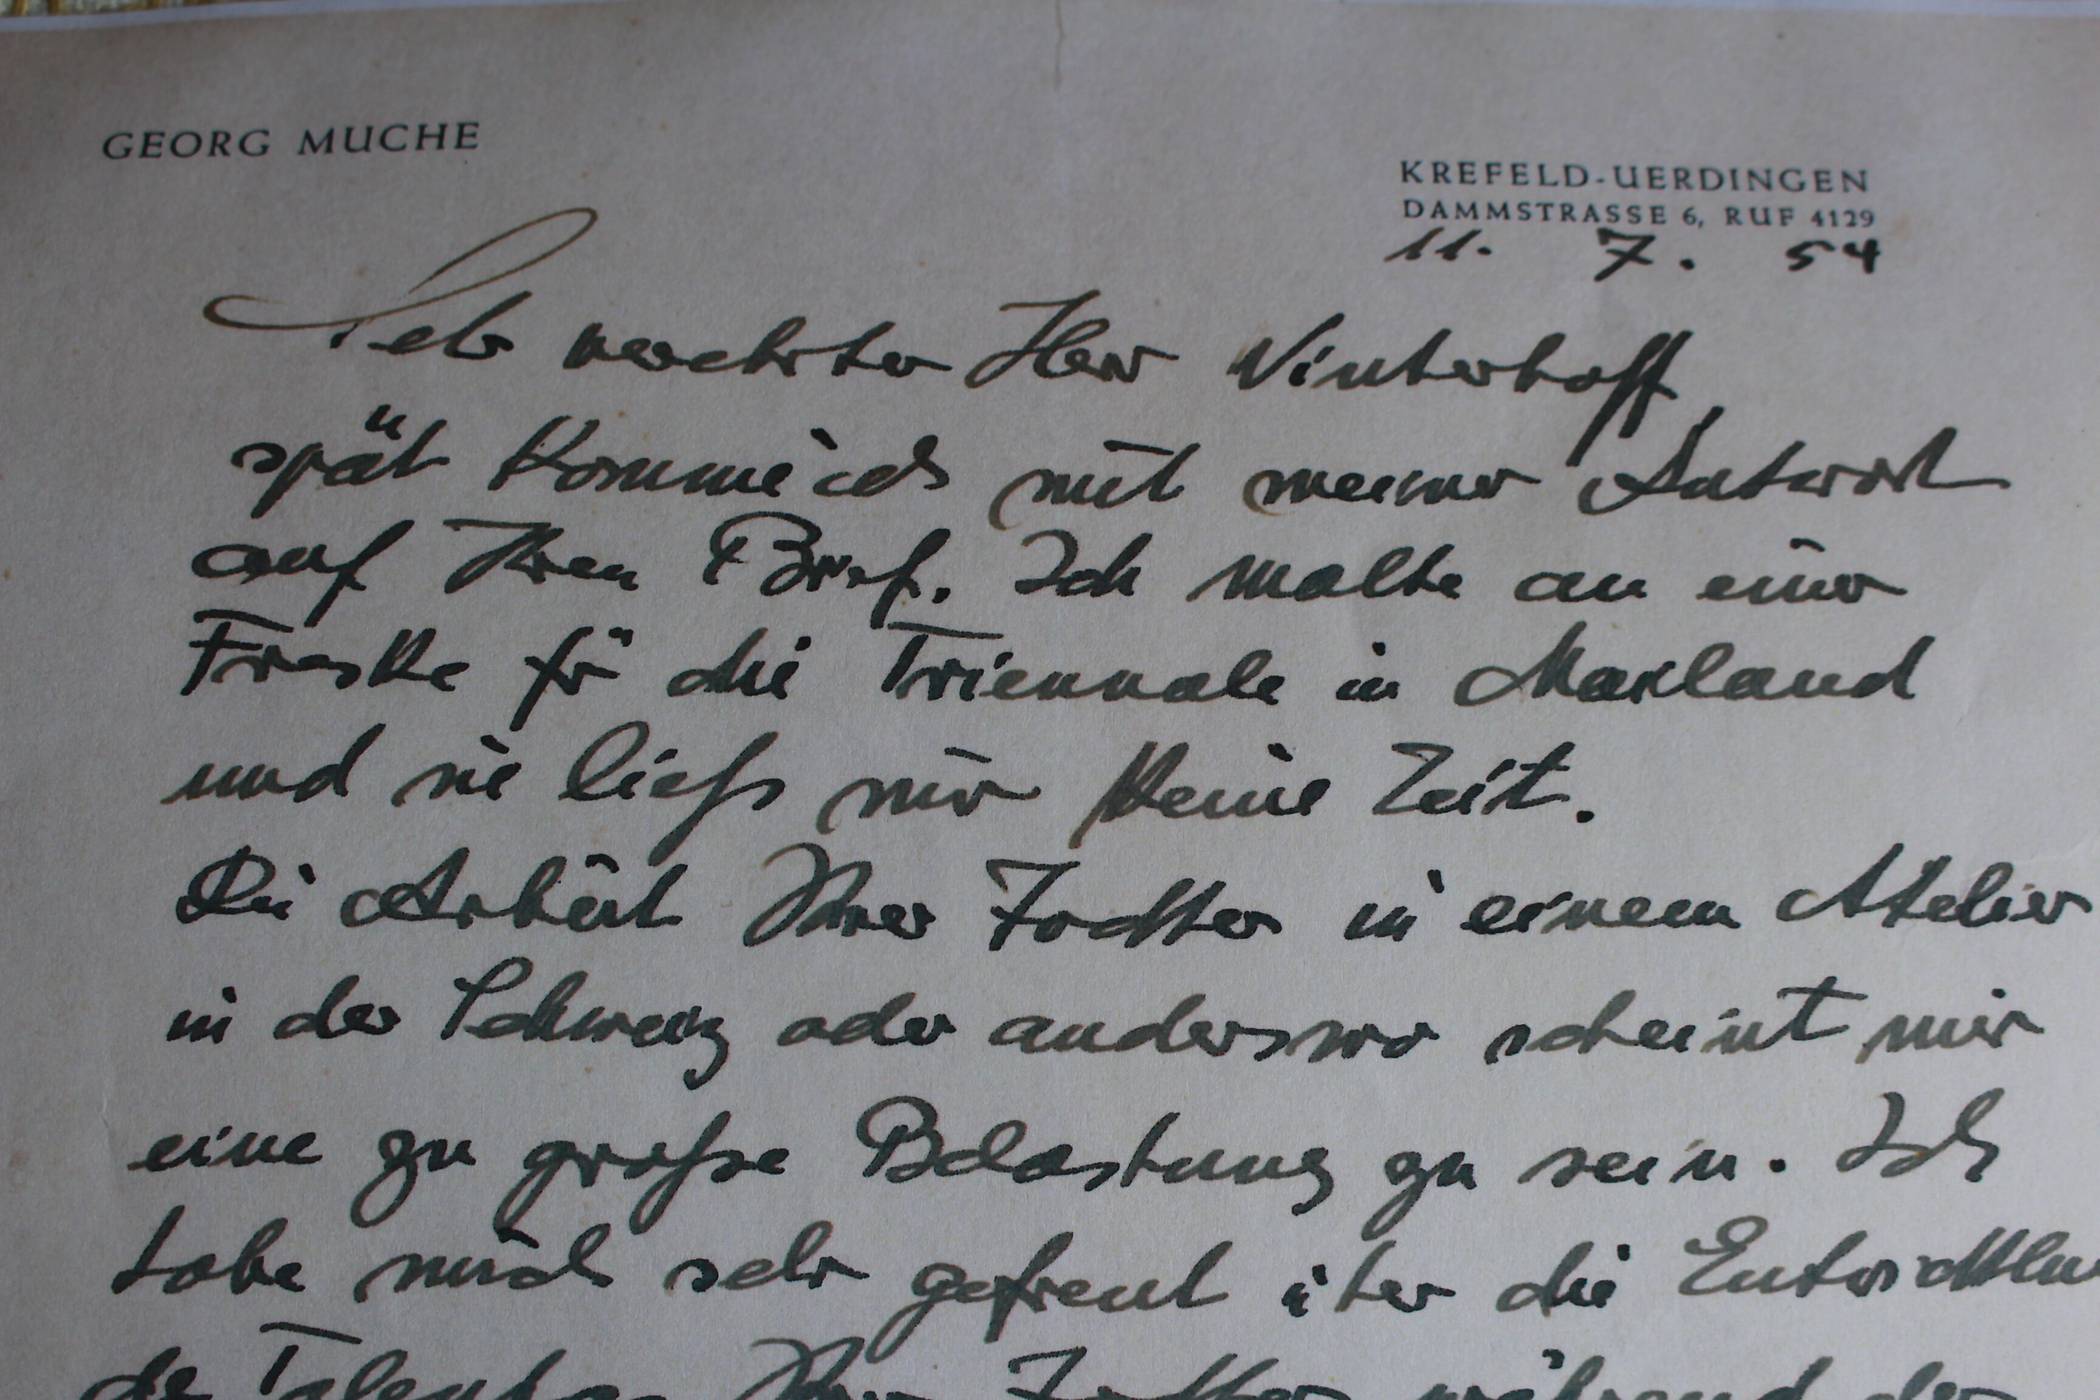 GEORG MUCHE
KREFELD-UERDINGEN
DAMMSTRASSE 6, RUF 4129
11. 7. 54
Sehr verehrter Herr Winterhoff,
spät komme ich mit meiner Antwort
auf Ihren Brief. Ich malte an einer
Freske für die Triennale in Mailand
und sie liess mir keine Zeit.
Die Arbeit Ihrer Tochter in einem Atelier
in der Schweiz oder anderswo scheint mir
eine zu große Belastung zu sein. Ich
habe mich sehr gefreut über die Entwicklu
der Talente Ihrer Tochter während der